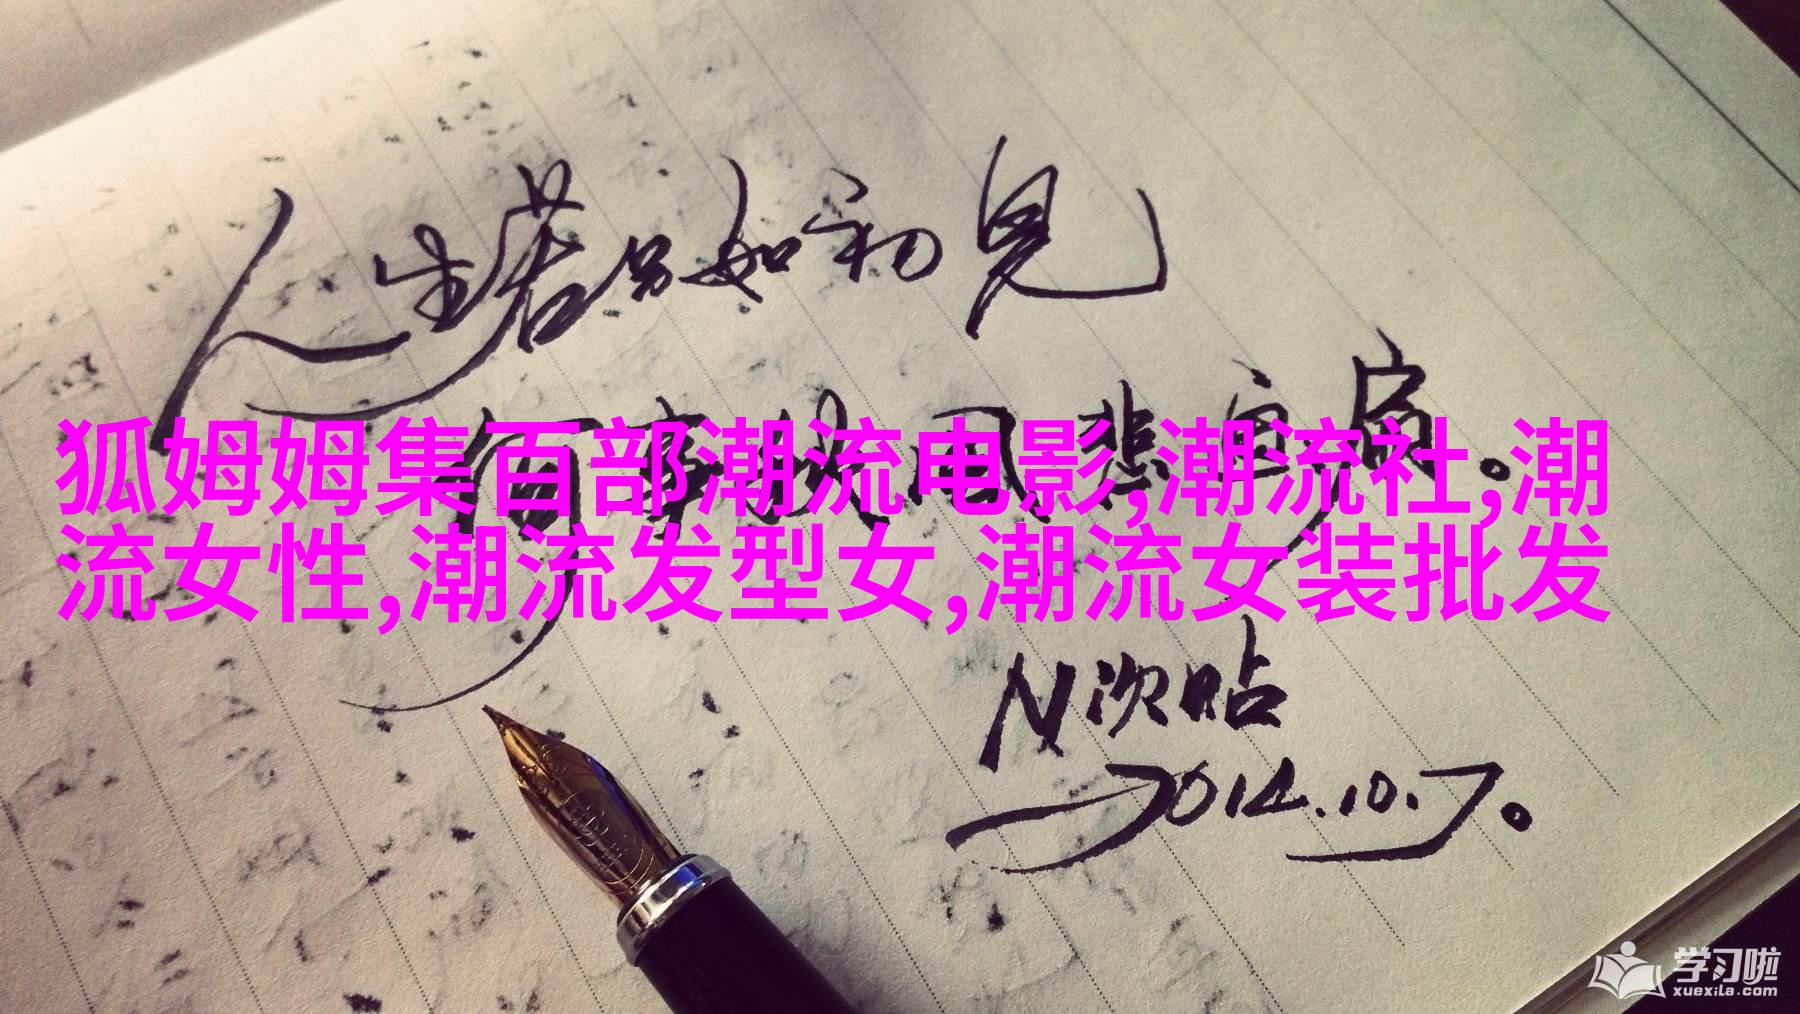 人生若只如初见
何事秋风悲画扇。
狐姆姆集百部潮流电影,潮流社,潮
流女性,潮流发型女,潮流女装批发
N次贴
2014.10.7。
学习啦
xuexila.com